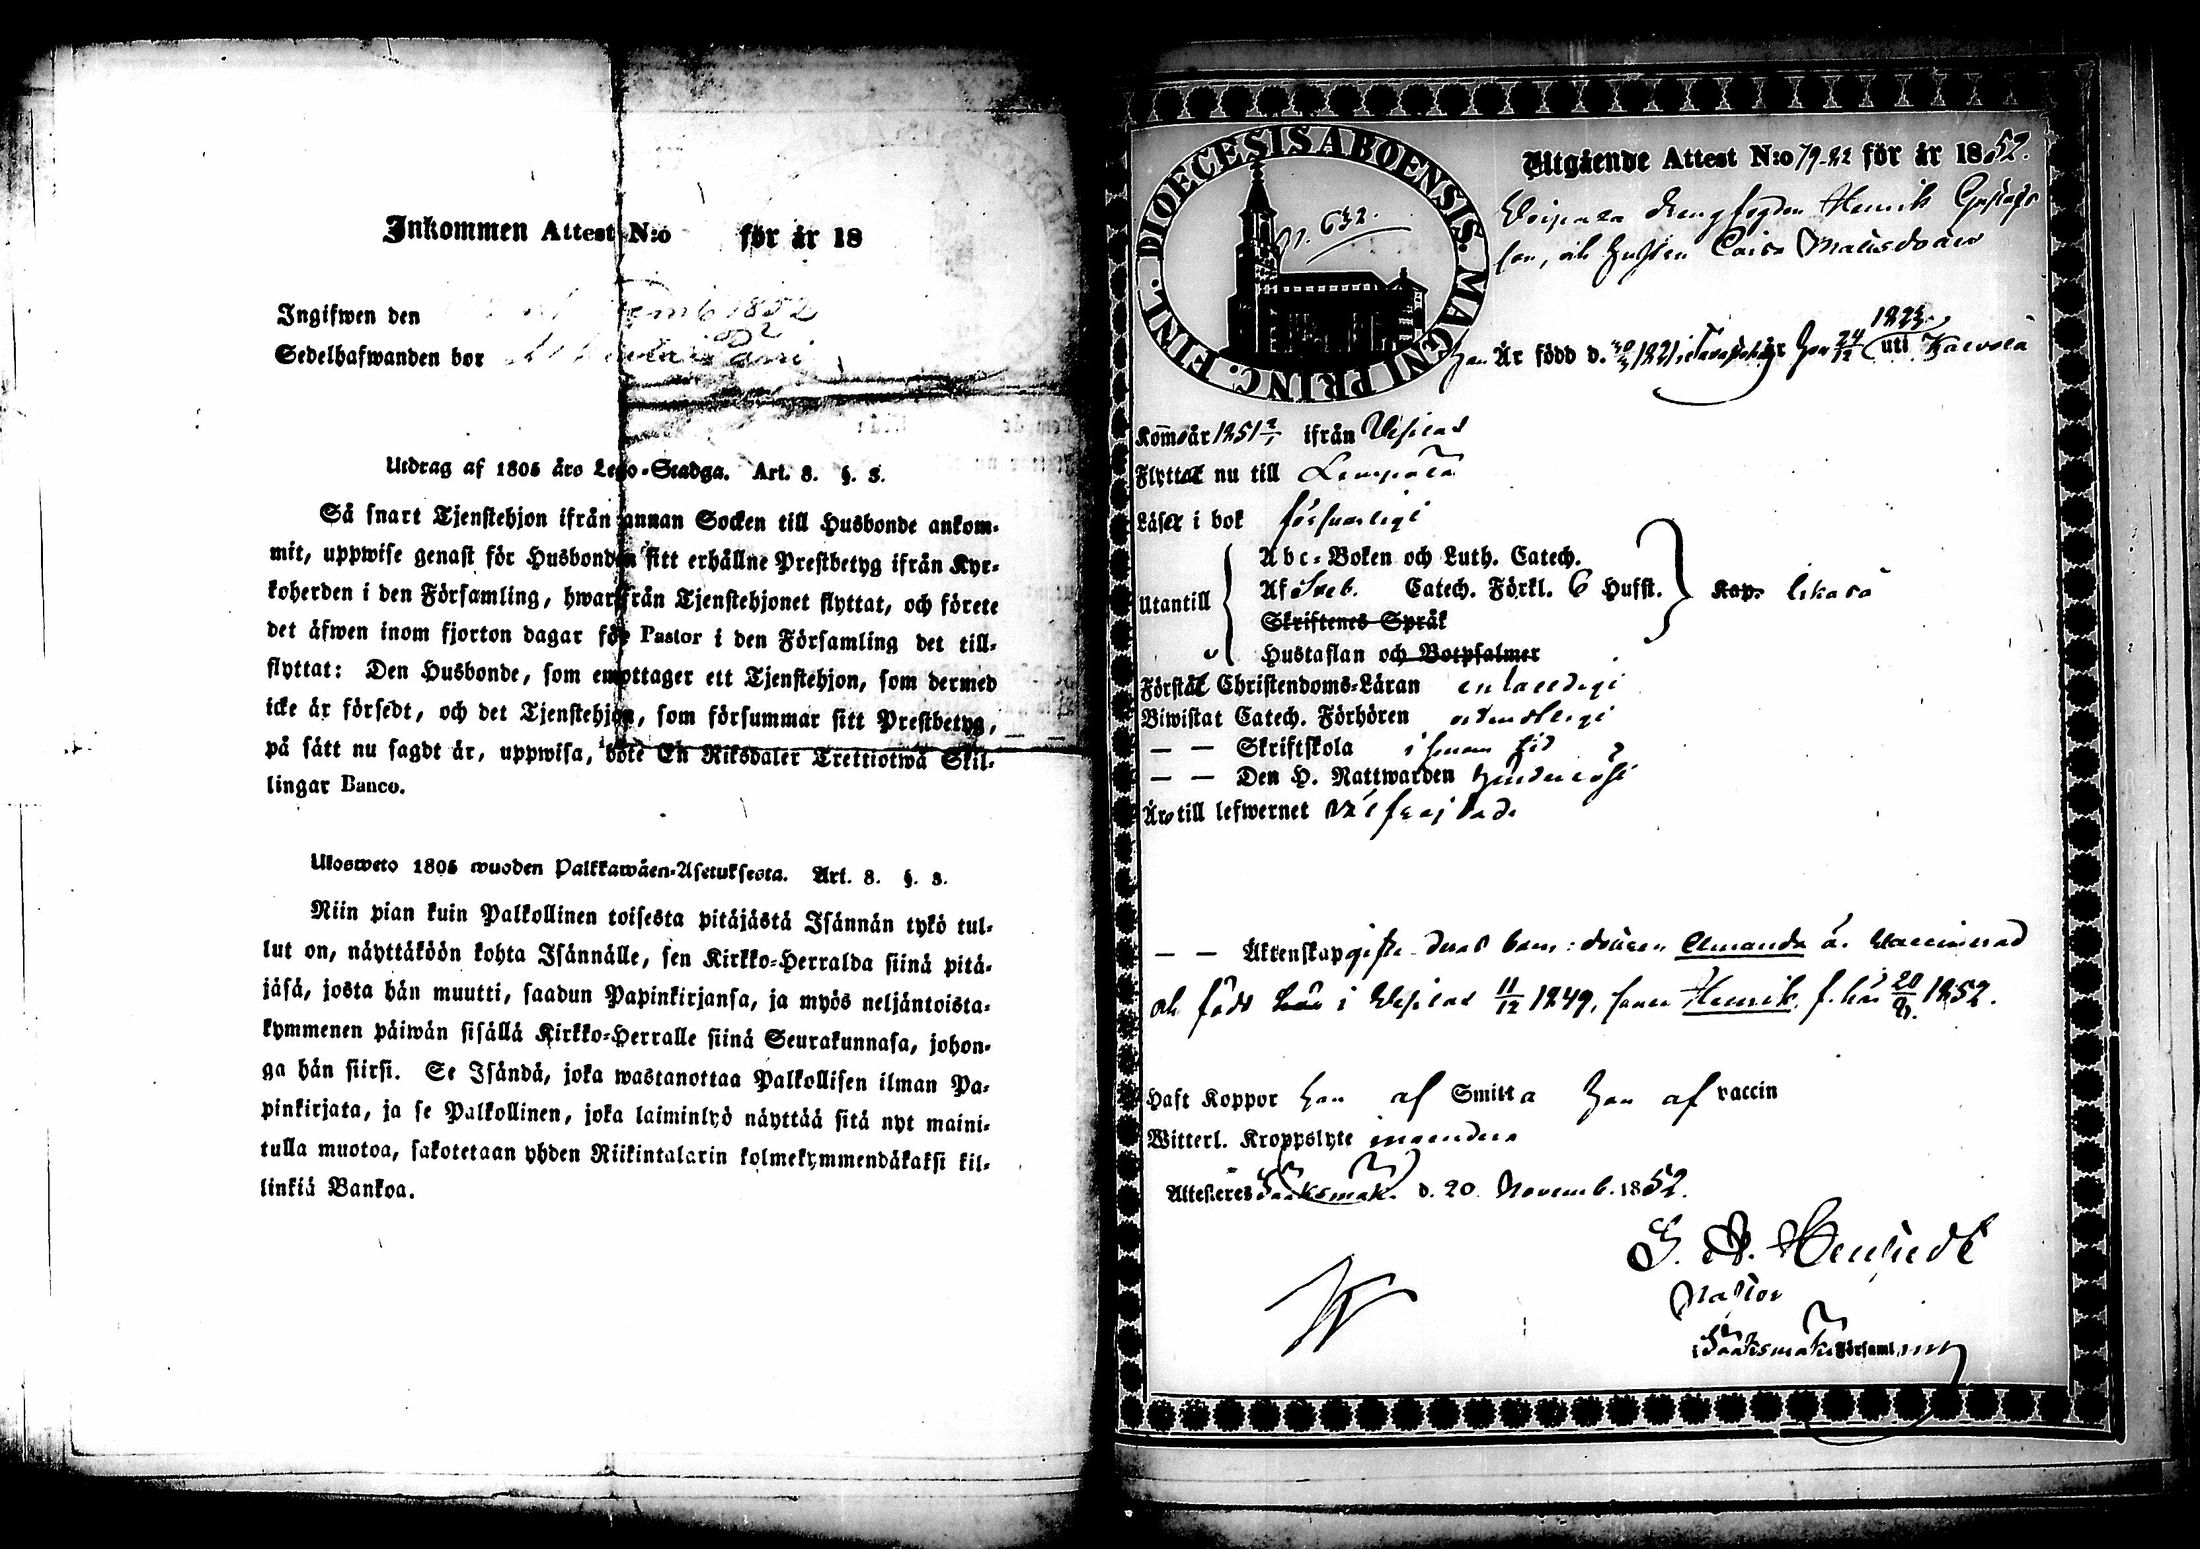 Inkommen Attest N:o för år 18
Ingifwen den 1852
Sedelhafwanden bor
Utdrag af 1805 års Lego-Stadga. Art. 8. §. 3.
Så snart Tjenstehjon ifrån annan Socken till Husbonde ankom-
mit, uppwise genast för Husbonden sitt erhållne Prestbetyg ifrån Kyr-
koherden i den Församling, hwarifrån Tjenstehjonet flyttat, och förete
det äfwen inom fjorton dagar för Pastor i den Församling det till-
flyttat: Den Husbonde, som emottager ett Tjenstehjon, som dermed
icke är försedt, och det Tjenstehjon, som försummar sitt Prestbetyg,
på sätt nu sagdt är, uppwisa, böte En Riksdaler Trettiotwå Skil-
lingar Banco.
Ulosweto 1805 wuoden Palkkawäen-Asetuksesta. Art. 8. §. 3.
Niin pian kuin Palkollinen toisesta pitäjästä Isännän tykö tul-
lut on, näyttäköön kohta Isännälle, sen Kirkko-Herralda siinä pitä-
jäsä, josta hän muutti, saadun Papinkirjansa, ja myös neljäntoista-
kymmenen päiwän sisällä Kirkko-Herralle siinä Seurakunnasa, johon-
ga hän siirsi. Se Isändä, joka wastanottaa Palkollisen ilman Pa-
pinkirjata, ja se Palkollinen, joka laiminlyö näyttää sitä nyt maini-
tulla muotoa, sakotetaan yhden Riikintalarin kolmekymmendäkaksi kil-
linkiä Bankoa.
DIOECESIS ABOENSIS. MAGNI PRINC. FINL.
p. 632.
Utgående Attest N:o 79-82 för år 1852.
Drengfogden Henrik Gustafs
son, och hustru Caisa
han Är född d. 1821 i hon 24/12 1823 uti Kalvola
Kom år 1851 ifrån Vesilax
Flyttat nu till Lempälä
Läser i bok försvarligt
Utantill
Abc-Boken och Luth. Catech.
Af Sveb. Catech. Förkl. 6 Hufst.
Skriftenes Språk
Hustaflan och Botpsalmer
Kap. lika så
Förstår Christendoms-Läran
Biwistat Catech. Förhören ordentligt
— — Skriftskola i sinom tid
— — Den H. Nattwarden
Äro till lefwernet välfrejdade
— — Äktenskap gifte. deras barn: dottren Amanda är vaccinerad
och född i Vesilax 11/12 1849, sonen Henrik f. här 20/9 1852.
Haft Koppor han af Smitta hon af vaccin
Witterl. Kroppslyte
Attesteres Sääksmäki d. 20 Novemb. 1852.
Pastor
i Sääksmäki Församling